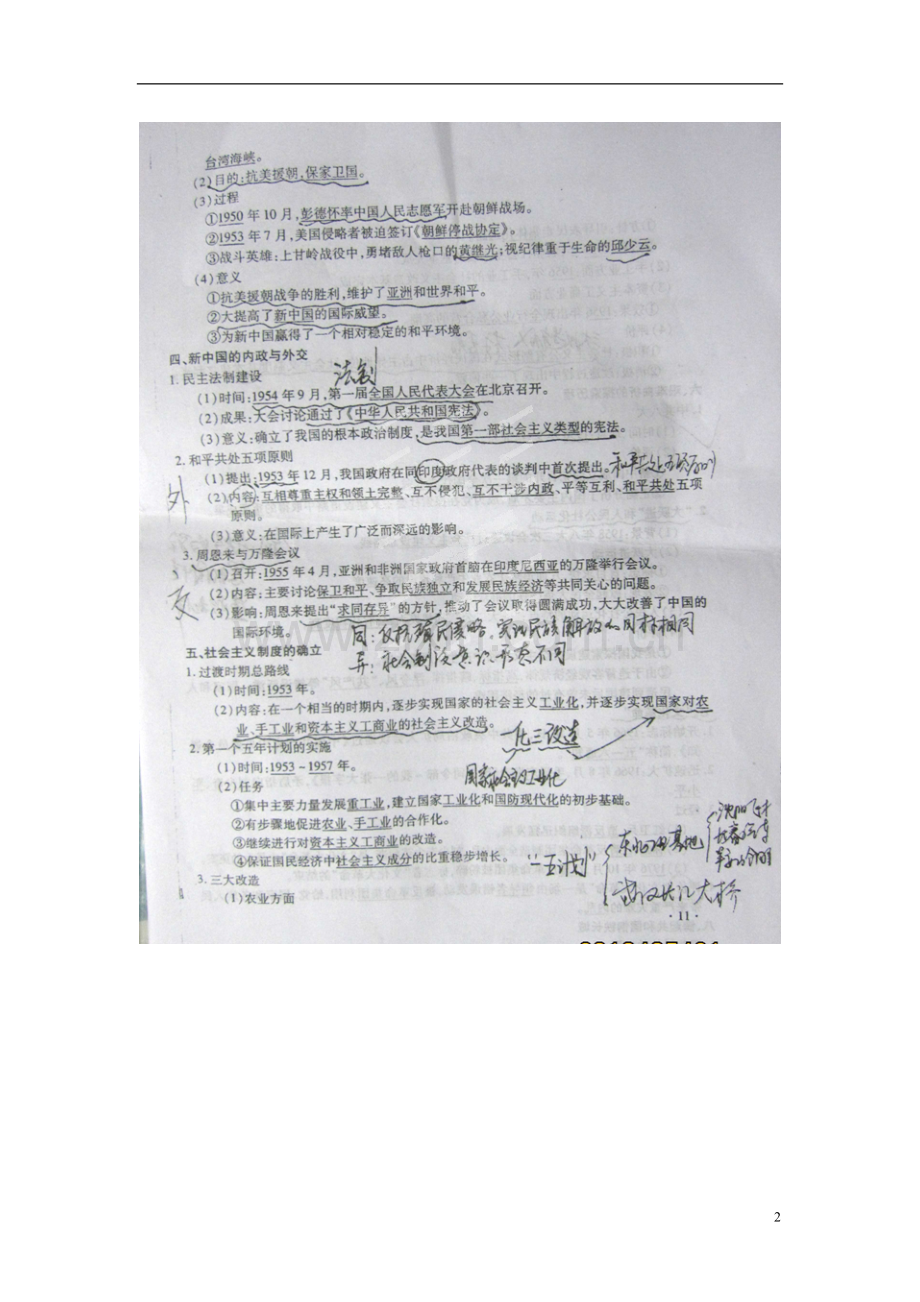 台湾海峡。
(2)目的:抗美援朝,保家卫国。
(3)过程
①1950年10月,彭德怀率中国人民志愿军开赴朝鲜战场。
②1953年7月,美国侵略者被迫签订《朝鲜停战协定》。
③战斗英雄:上甘岭战役中,勇堵敌人枪口的黄继光;视纪律重于生命的邱少云。
(4)意义
①抗美援朝战争的胜利,维护了亚洲和世界和平。
②大提高了新中国的国际威望。
③为新中国赢得了一个相对稳定的和平环境。
四、新中国的内政与外交
法制
1.民主法制建设
(1)时间:1954年9月,第一届全国人民代表大会在北京召开。
(2)成果:大会讨论通过了《中华人民共和国宪法》。
(3)意义:确立了我国的根本政治制度,是我国第一部社会主义类型的宪法。
2.和平共处五项原则
(1)提出:1953年12月,我国政府在同印度政府代表的谈判中首次提出。和平共处五项原则
外
(2)内容:互相尊重主权和领土完整、互不侵犯、互不干涉内政、平等互利、和平共处五项
原则。
(3)意义:在国际上产生了广泛而深远的影响。
3.周恩来与万隆会议
(1)召开:1955年4月,亚洲和非洲国家政府首脑在印度尼西亚的万隆举行会议。
交
(2)内容:主要讨论保卫和平、争取民族独立和发展民族经济等共同关心的问题。
(3)影响:周恩来提出“求同存异”的方针,推动了会议取得圆满成功,大大改善了中国的
国际环境。
同:反抗殖民侵略,实现民族解放的目标相同
五、社会主义制度的确立
异:社会制度意识形态不同
1.过渡时期总路线
(1)时间:1953年。
(2)内容:在一个相当的时期内,逐步实现国家的社会主义工业化,并逐步实现国家对农
业、手工业和资本主义工商业的社会主义改造。
一化三改造
2.第一个五年计划的实施
(1)时间:1953-1957年。
国家社会主义工业化
(2)任务
①集中主要力量发展重工业,建立国家工业化和国防现代化的初步基础。
②有步骤地促进农业、手工业的合作化。
③继续进行对资本主义工商业的改造。
④保证国民经济中社会主义成分的比重稳步增长。
一五计划
东北工业基地
武汉长江大桥
3.三大改造
(1)农业方面
·11·
2